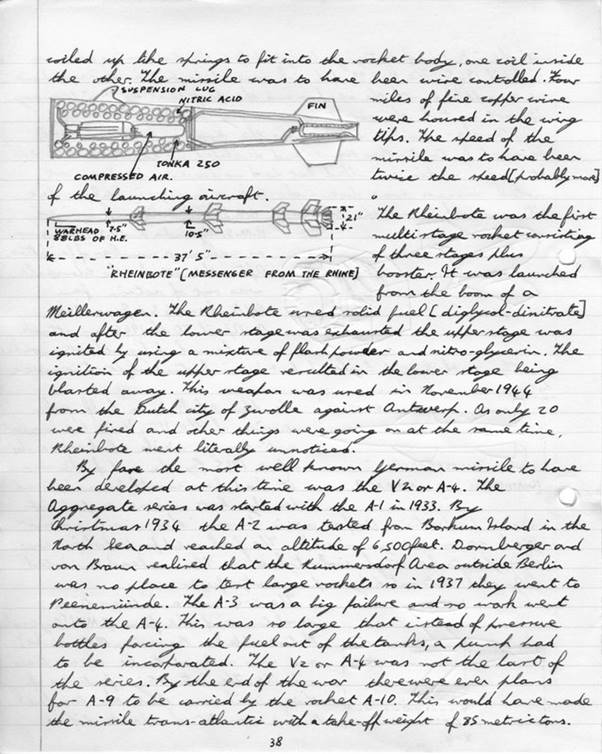 coiled up like springs to fit into the rocket body, one coil inside
the other. The missile was to have been wire controlled. Four
SUSPENSION LUG
NITRIC ACID
FIN
TONKA 250
COMPRESSED AIR.
miles of fine copper wire
were housed in the wing
tips. The speed of the
missile was to have been
twice the speed [probably max]
of the launching aircraft.
WARHEAD
88LBS OF H.E.
7·5"
10·5"
21"
37' 5"
"RHEINBOTE" [MESSENGER FROM THE RHINE]
The Rheinbote was the first
multi stage rocket consisting
of three stages plus
booster. It was launched
from the boom of a
Meillerwagen. The Rheinbote used solid fuel [diglycol-dinitrate]
and after the lower stage was exhausted the upper stage was
ignited by using a mixture of flash powder and nitro-glycerin. The
ignition of the upper stage resulted in the lower stage being
blasted away. This weapon was used in November 1944
from the Dutch city of Zwolle against Antwerp. As only 20
were fired and other things were going on at the same time,
Rheinbote went literally unnoticed.
By far the most well known German missile to have
been developed at this time was the V2 or A-4. The
Aggregate series was started with the A-1 in 1933. By
Christmas 1934 the A-2 was tested from Borkum Island in the
North Sea and reached an altitude of 6,500 feet. Dornberger and
von Braun realised that the Kummersdorf Area outside Berlin
was no place to test large rockets so in 1937 they went to
Peenemünde. The A-3 was a big failure and so work went
onto the A-4. This was so large that instead of pressure
bottles forcing the fuel out of the tanks, a pump had
to be incorporated. The V2 or A-4 was not the last of
the series. By the end of the war there were even plans
for A-9 to be carried by the rocket A-10. This would have made
the missile trans-atlantic with a take-off weight of 85 metric tons.
38